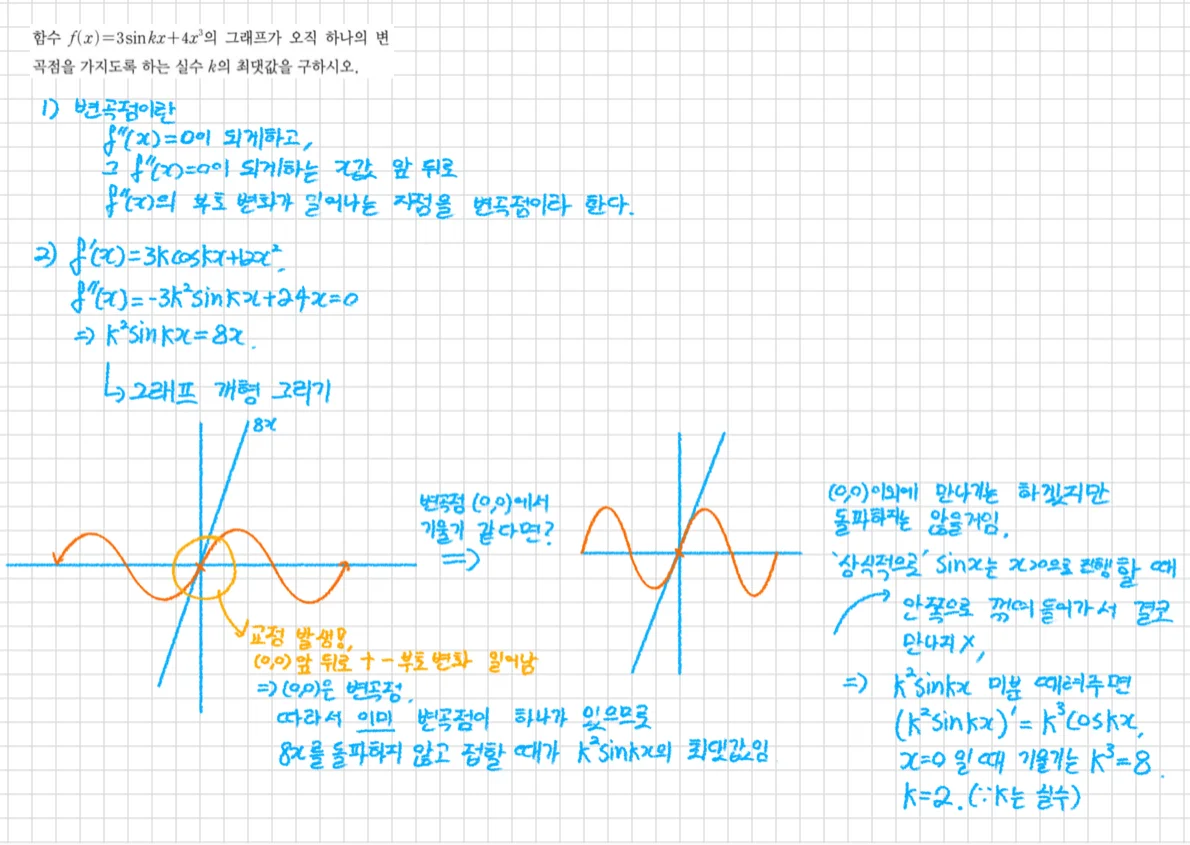 함수 f(x)=3sinkx+4x³의 그래프가 오직 하나의 변
곡점을 가지도록 하는 실수 k의 최댓값을 구하시오.
1) 변곡점이란
f''(x)=0이 되게하고,
그 f''(x)=0이 되게하는 x값 앞 뒤로
f''(x)의 부호 변화가 일어나는 지점을 변곡점이라 한다.
2) f'(x)=3kcoskx+12x².
f''(x)=-3k²sinkx+24x=0
⇒ k²sinkx=8x.
↳ 그래프 개형 그리기
8x
교점 발생!,
(0,0) 앞 뒤로 + - 부호변화 일어남
⇒ (0,0)은 변곡점.
따라서 이미 변곡점이 하나가 있으므로
8x를 돌파하지 않고 접할 때가 k²sinkx의 최댓값임
변곡점 (0,0)에서
기울기 같다면?
⇒
(0,0)이외에 만나기는 하겠지만
돌파하지는 않을거임.
'상식적으로' sinx는 x>0으로 진행할 때
안쪽으로 꺾여 들어가서 결코
만나지 X,
⇒ k²sinkx 미분 때려주면
(k²sinkx)'=k³coskx,
x=0 일 때 기울기는 k³=8.
k=2. (∵k는 실수)